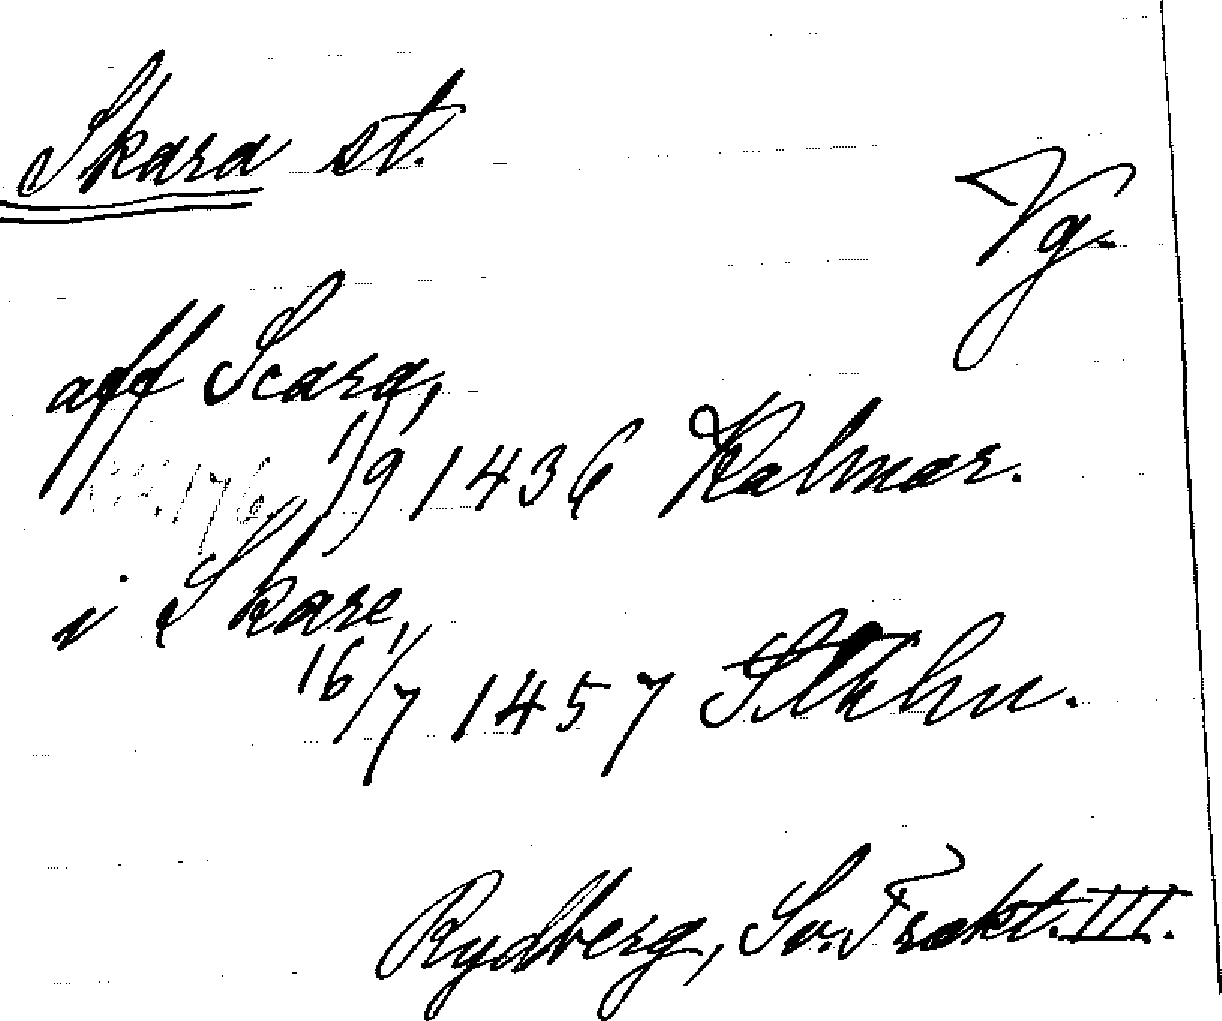 Skara st.
Vg.
aff Scara,
1/9 1436 Kalmar.
176
i Skare,
16/7 1457 Sthlm.
Rydberg, Sv. Trakt. III.